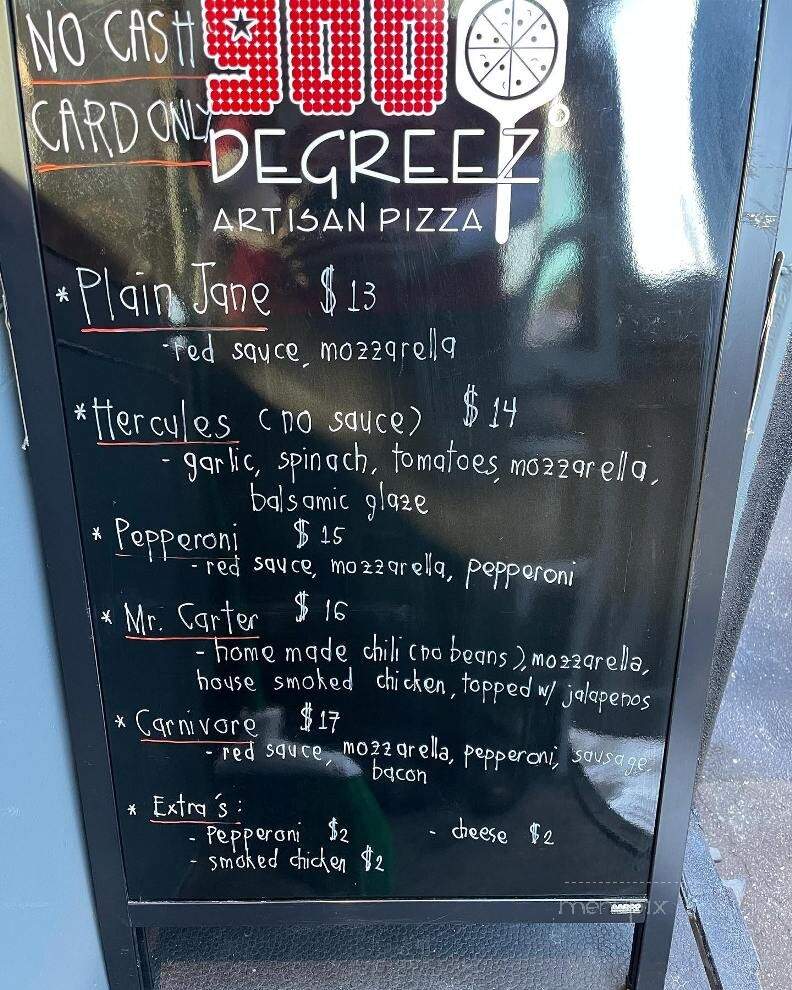 NO CASH
CARD ONLY
900
DEGREEZ
ARTISAN PIZZA
* Plain Jane $13
- red sauce, mozzarella
* Hercules (no sauce) $14
- garlic, spinach, tomatoes, mozzarella,
balsamic glaze
* Pepperoni $15
- red sauce, mozzarella, pepperoni
* Mr. Carter $16
- home made chili (no beans), mozzarella,
house smoked chicken, topped w/ jalapenos
* Carnivore $17
- red sauce, mozzarella, pepperoni, sausage,
bacon
* Extra's:
- Pepperoni $2 - cheese $2
- smoked chicken $2
menupix